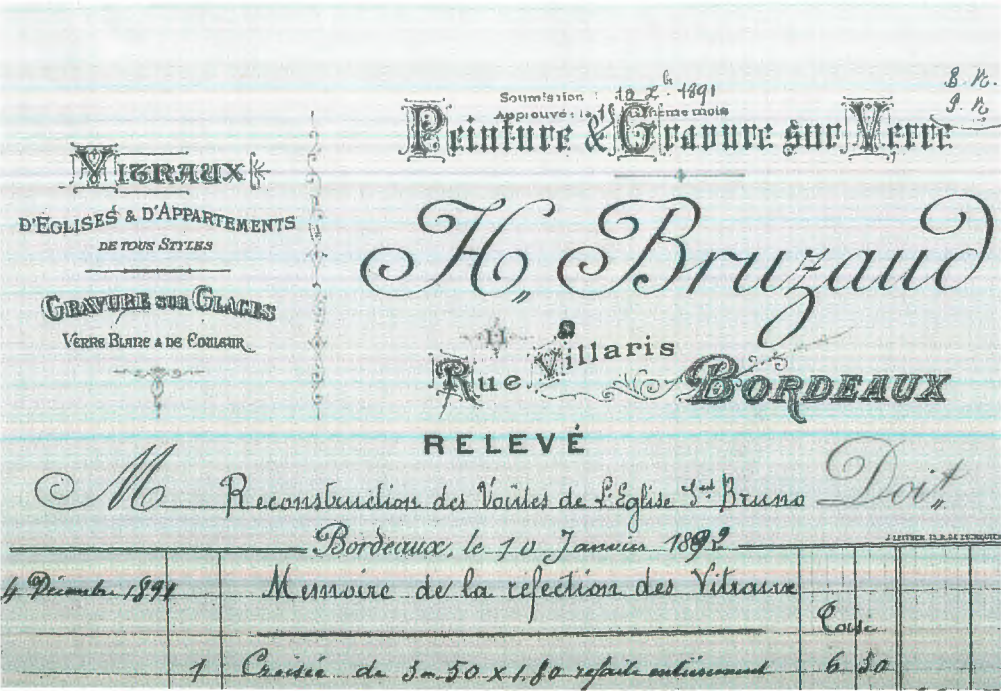 Soumission : 10 X.bre 1891
Approuvé : le même mois
B. N.
VITRAUX
D'EGLISES & D'APPARTEMENTS
DE TOUS STYLES
GRAVURE SUR GLACES
VERRE BLANC & DE COULEUR
Peinture & Gravure sur Verre
H. Bruzaud
11
Rue Villaris
BORDEAUX
RELEVÉ
M Reconstruction des Voûtes de l'Eglise St Bruno Doit
Bordeaux, le 10 Janvier 1892
4 Décembre 1891 Memoire de la réfection des Vitraux
1 Croisée de 3m50 x 1.80 refaite entièrement 6 30